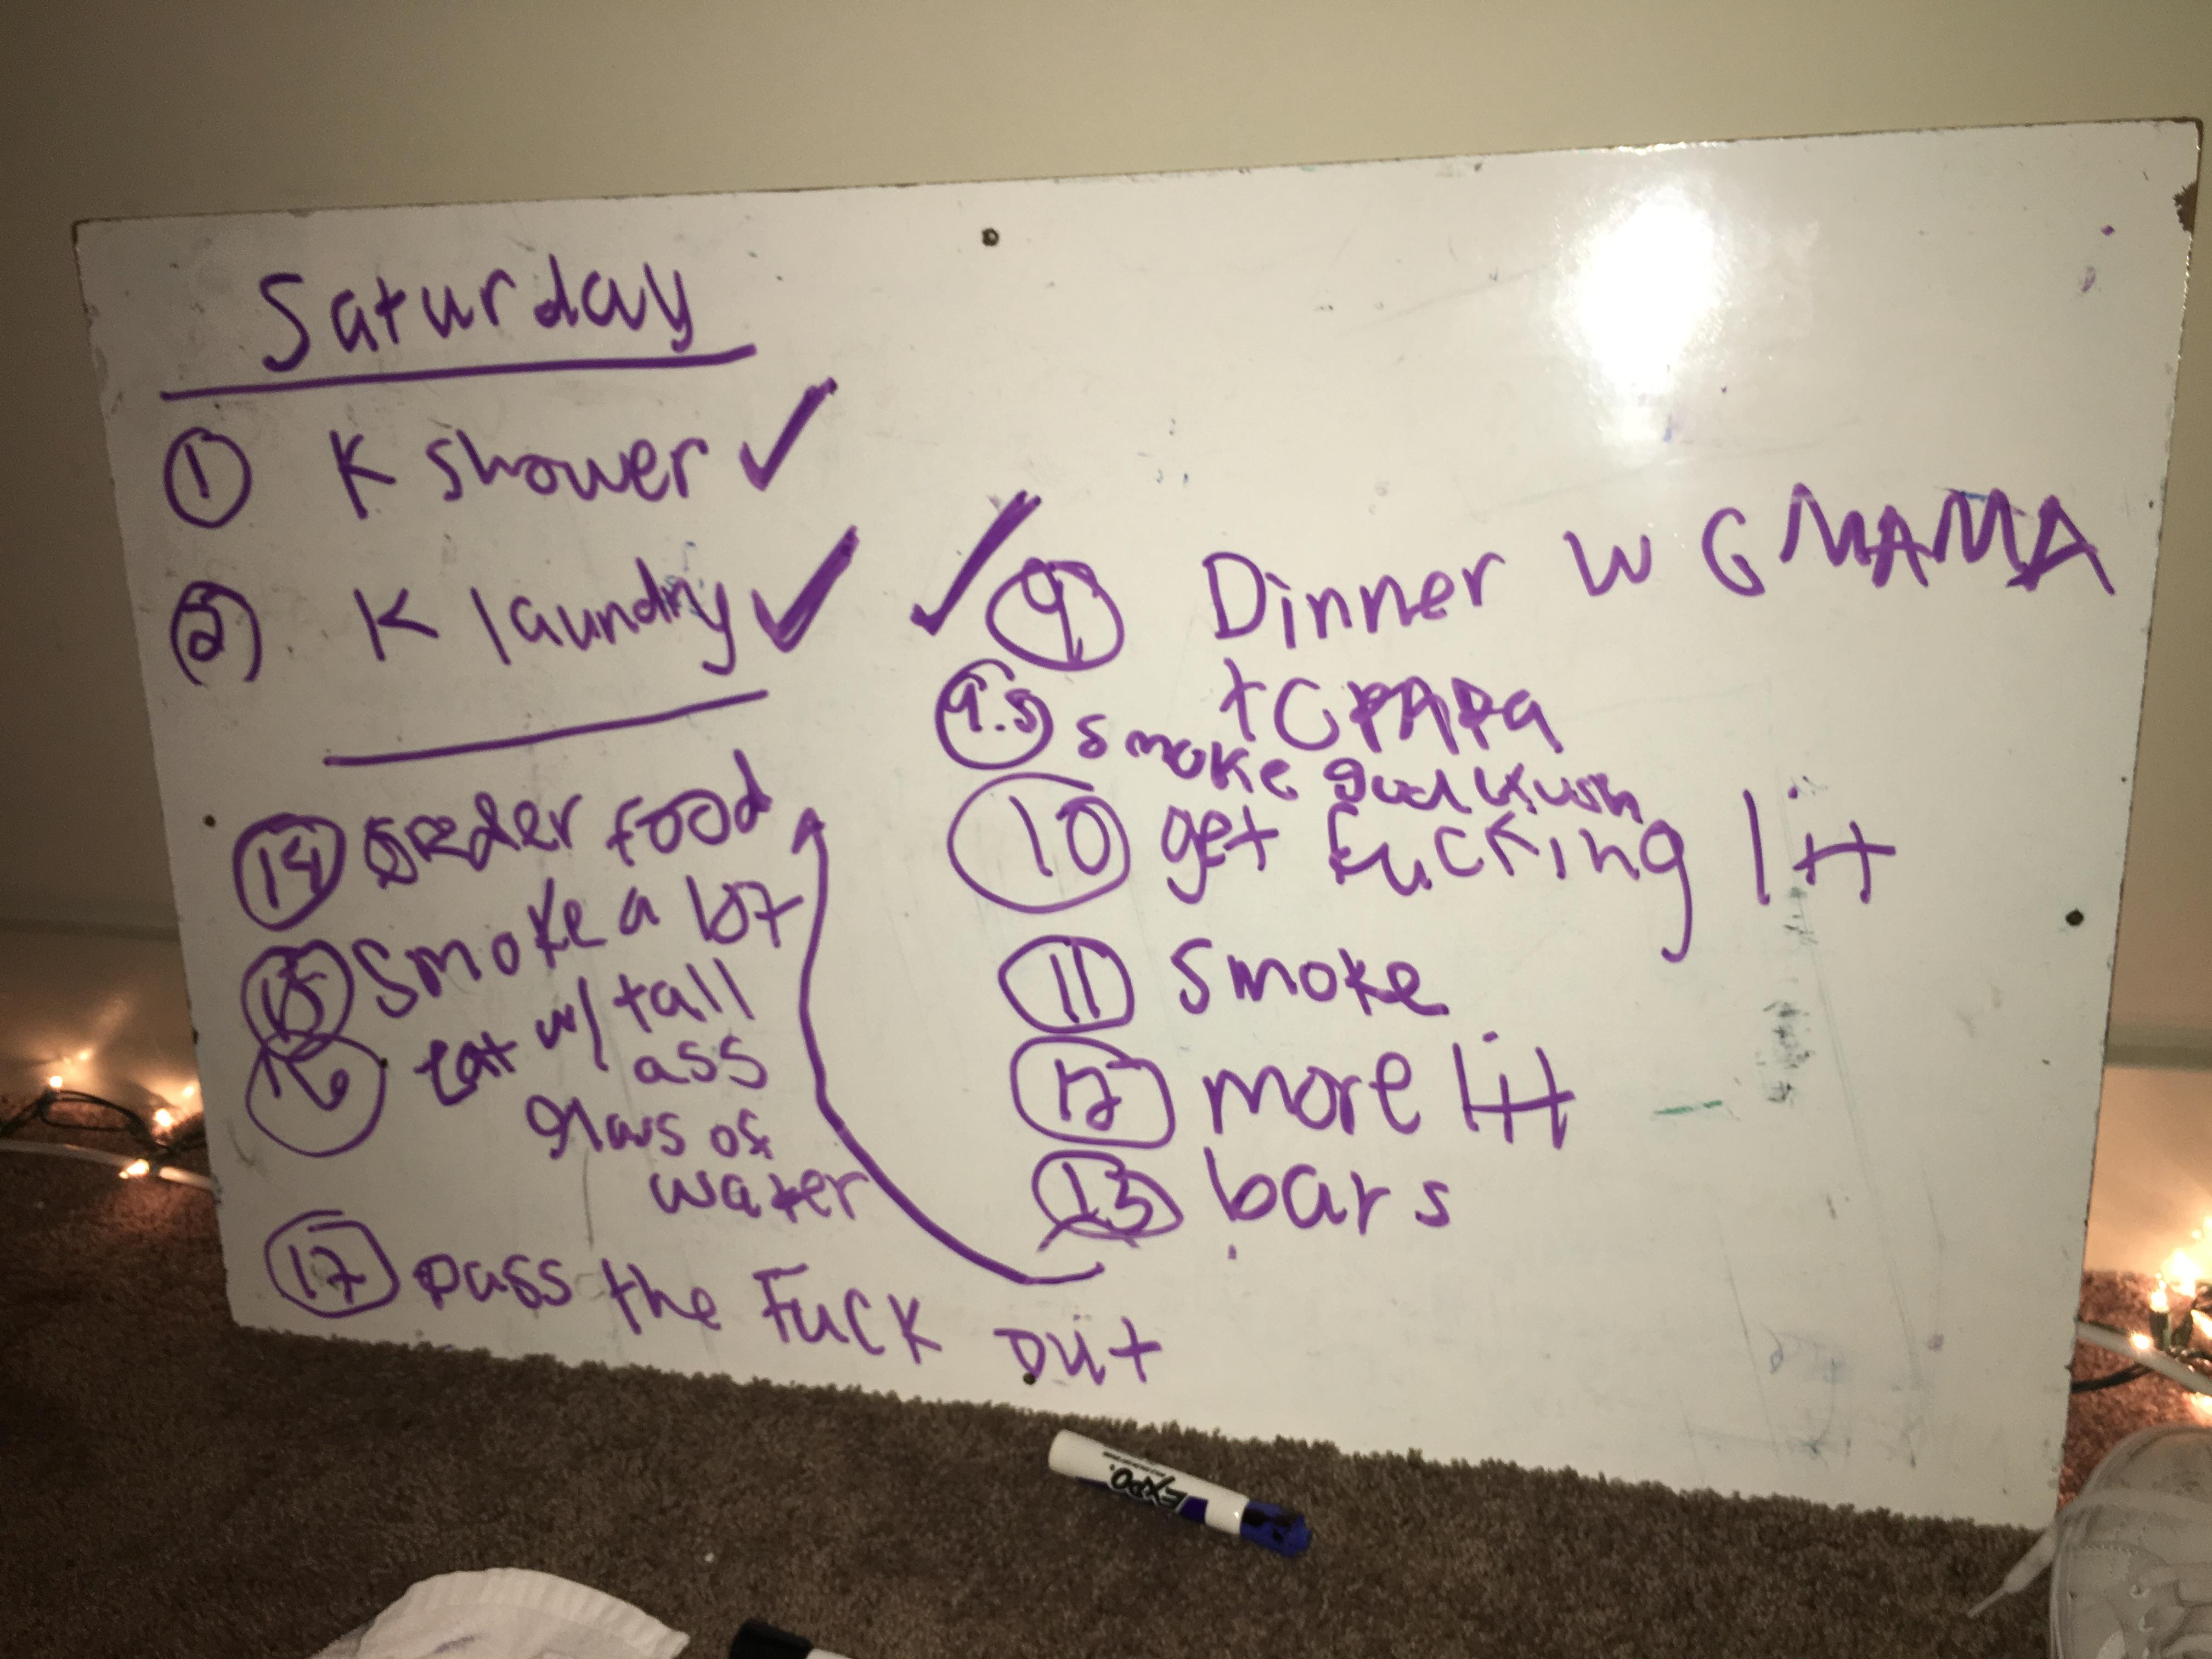 Saturday
① K shower ✓
② K laundry ✓
✓ ⑨ Dinner w GMAMA
+ GPAPA
9.5 smoke good kush
⑩ get fucking lit
⑪ smoke
⑫ more lit
⑬ bars
⑭ order food
⑮ smoke a lot
⑯ eat w/ tall
ass
glass of
water
⑰ pass the fuck out
EXPO